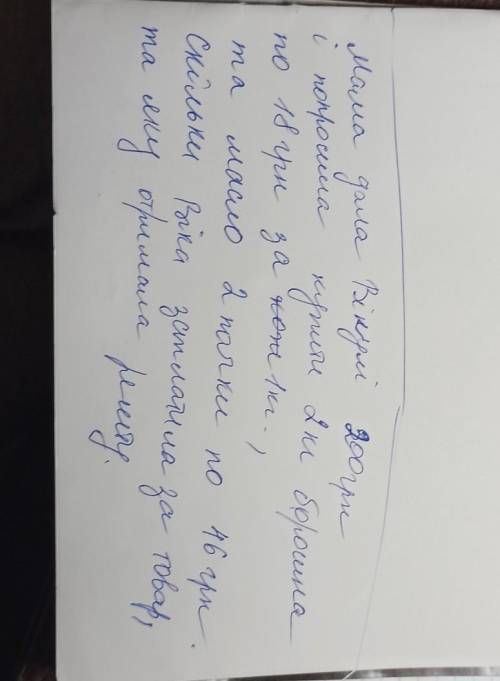 Мама дала Вікулі 200грн
і попросила купити 2кг борошна
по 18 грн за 1кг.,
та масло 2 пачки по 46 грн.
Скільки Віка зплатила за товар,
та яку отримала решту.